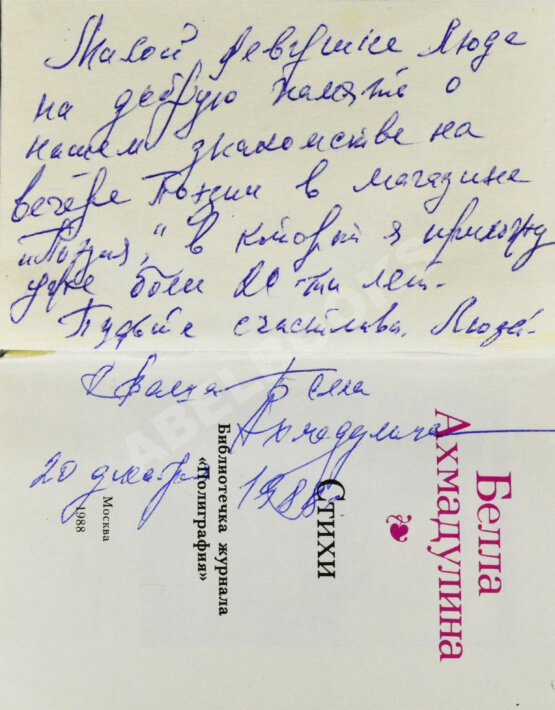 Милой девушке Люде
на добрую память о
нашем знакомстве на
вечере Поэзии в магазине
„Поэзия", в который я прихожу
уже более 20-ти лет.
Будьте счастливы. Люда.
Ваша Белла
Ахмадулина
20 декабря 1988
Белла
Ахмадулина
Стихи
Библиотечка журнала
«Полиграфия»
Москва
1988
ABELBOOKS